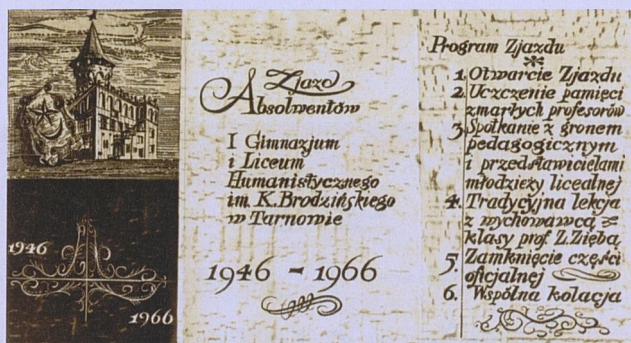 1946
1966
Zjazd
Absolwentów
I Gimnazjum
i Liceum
Humanistycznego
im. K. Brodzińskiego
w Tarnowie
1946 - 1966
Program Zjazdu
1. Otwarcie Zjazdu
2. Uczczenie pamięci
zmarłych profesorów
3. Spotkanie z gronem
pedagogicznym
i przedstawicielami
młodzieży licealnej
4. Tradycyjna lekcja
z wychowawcą
klasy prof. Z. Ziębą
5. Zamknięcie części
oficjalnej
6. Wspólna kolacja